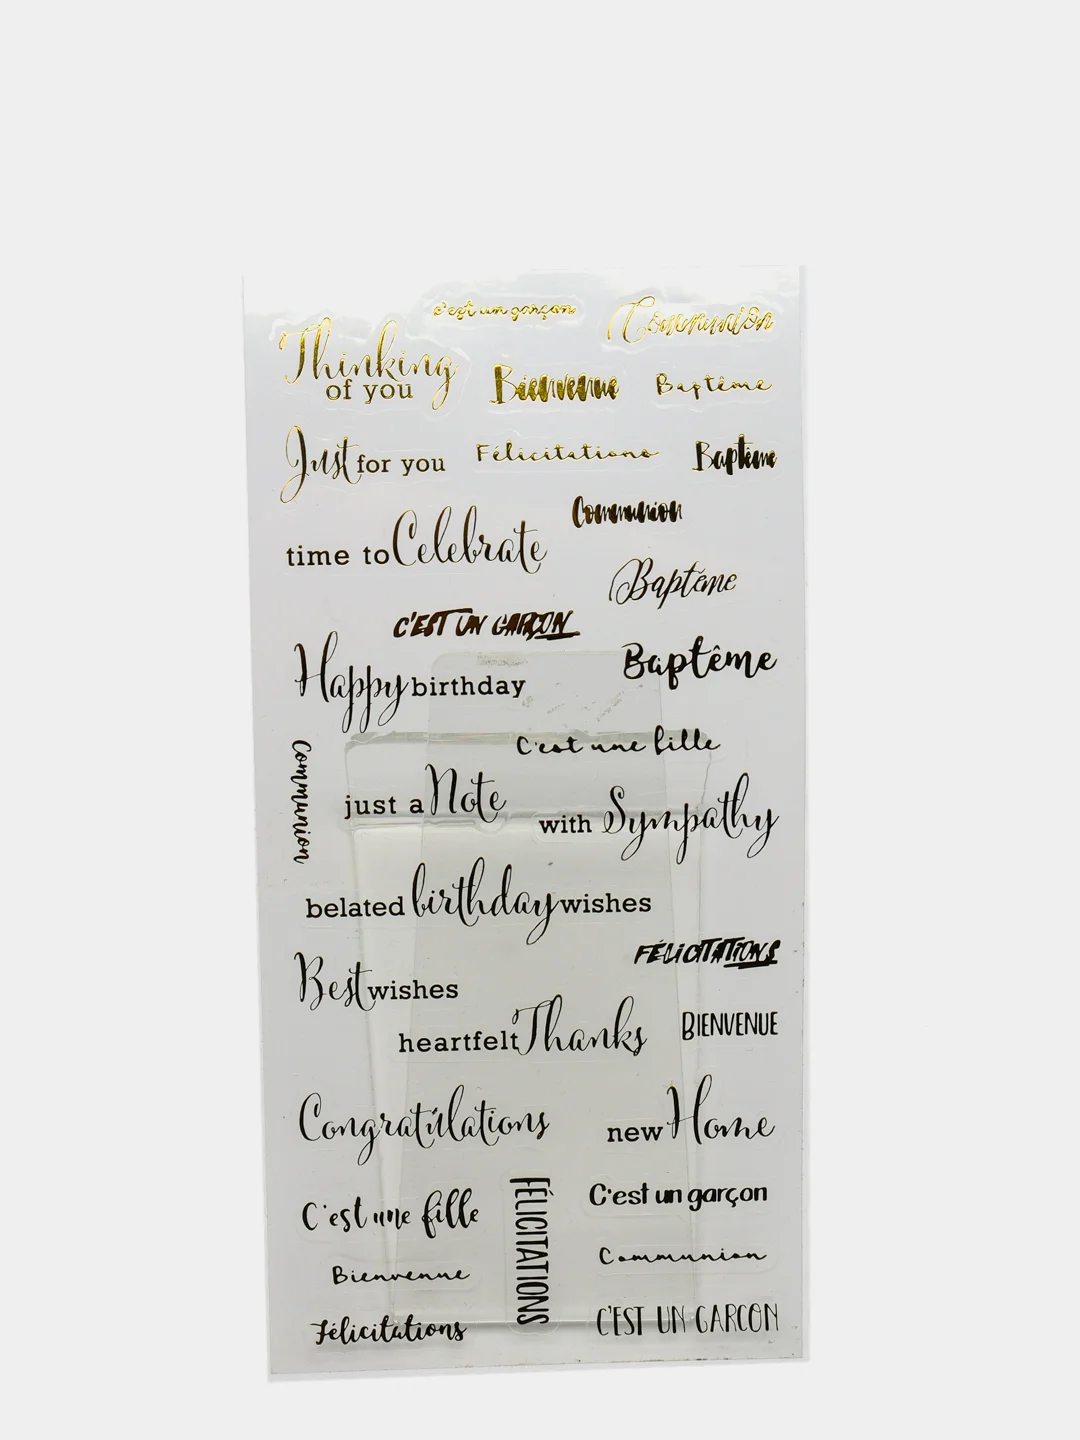 c'est un garçon
Communion
Thinking
of you
Bienvenue
Baptême
Just for you
Félicitations
Baptême
Communion
time to Celebrate
Baptême
C'EST UN GARÇON
Baptême
Happy birthday
C'est une fille
Communion
just a Note
with Sympathy
belated birthday wishes
FÉLICITATIONS
Best wishes
heartfelt Thanks
BIENVENUE
Congratulations
new Home
FÉLICITATIONS
C'est un garçon
C'est une fille
Communion
Bienvenue
C'EST UN GARCON
Félicitations